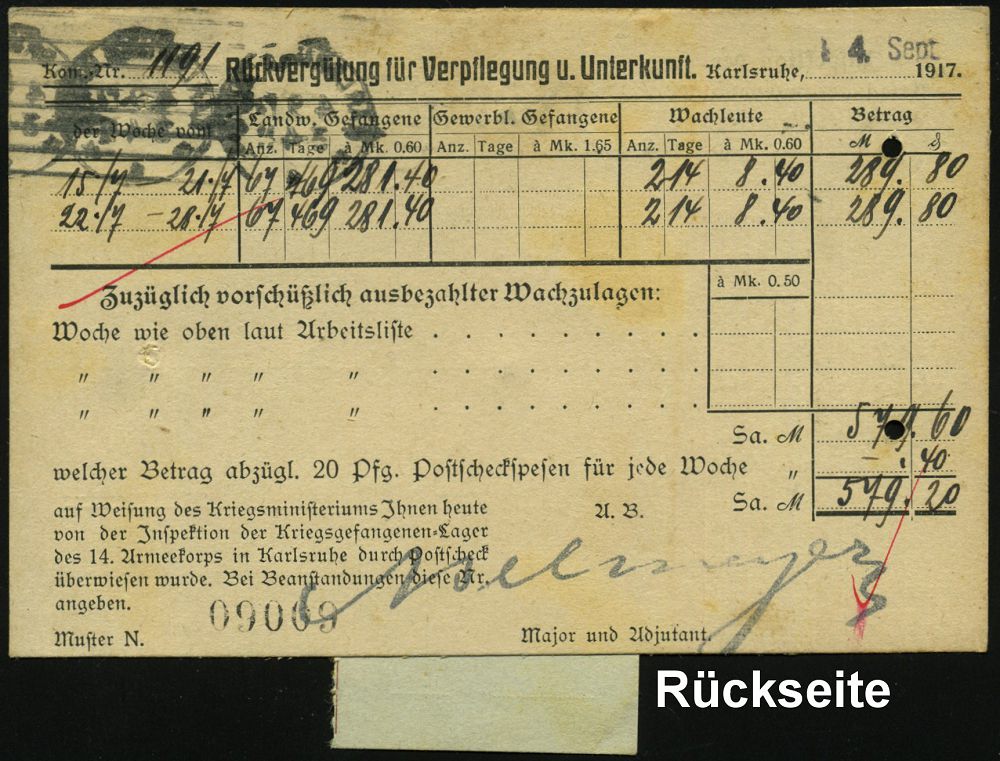 Kom.-Nr. 1191 Rückvergütung für Verpflegung u. Unterkunft. Karlsruhe, 4. Sept. 1917.
der Woche vom Landw. Gefangene Gewerbl. Gefangene Wachleute Betrag
Anz. Tage à Mk. 0.60 Anz. Tage à Mk. 1.65 Anz. Tage à Mk. 0.60 M ₰
15/7 – 21./7 67 469 281.40 2 14 8.40 289. 80
22./7 – 28./7 67 469 281.40 2 14 8.40 289. 80
Zuzüglich vorschüßlich ausbezahlter Wachzulagen: à Mk. 0.50
Woche wie oben laut Arbeitsliste . . . . . . . .
" " " " " . . . . . . . .
" " " " " . . . . . . . .
Sa. M 579. 60
welcher Betrag abzügl. 20 Pfg. Postscheckspesen für jede Woche " –. 40
Sa. M 579. 20
auf Weisung des Kriegsministeriums Ihnen heute
von der Inspektion der Kriegsgefangenen-Lager
des 14. Armeekorps in Karlsruhe durch Postscheck
überwiesen wurde. Bei Beanstandungen diese Nr.
angeben. 09009
A. B.
Muster N. Major und Adjutant.
Rückseite